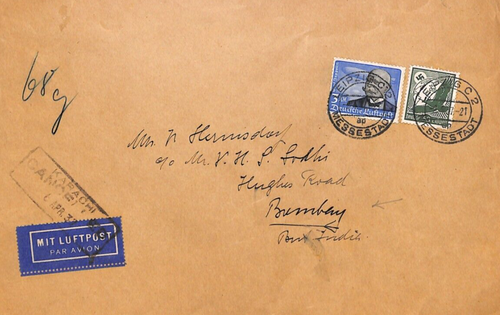 68g
LEIPZIG C2
MESSESTADT
Deutsche Luftpost
LEIPZIG C2
MESSESTADT
Mr. N Hermsdorf
c/o Mr. V. H. S. Sodhi
Hughes Road
Bombay
Brit India
KARACHI
APR. 3
MIT LUFTPOST
PAR AVION